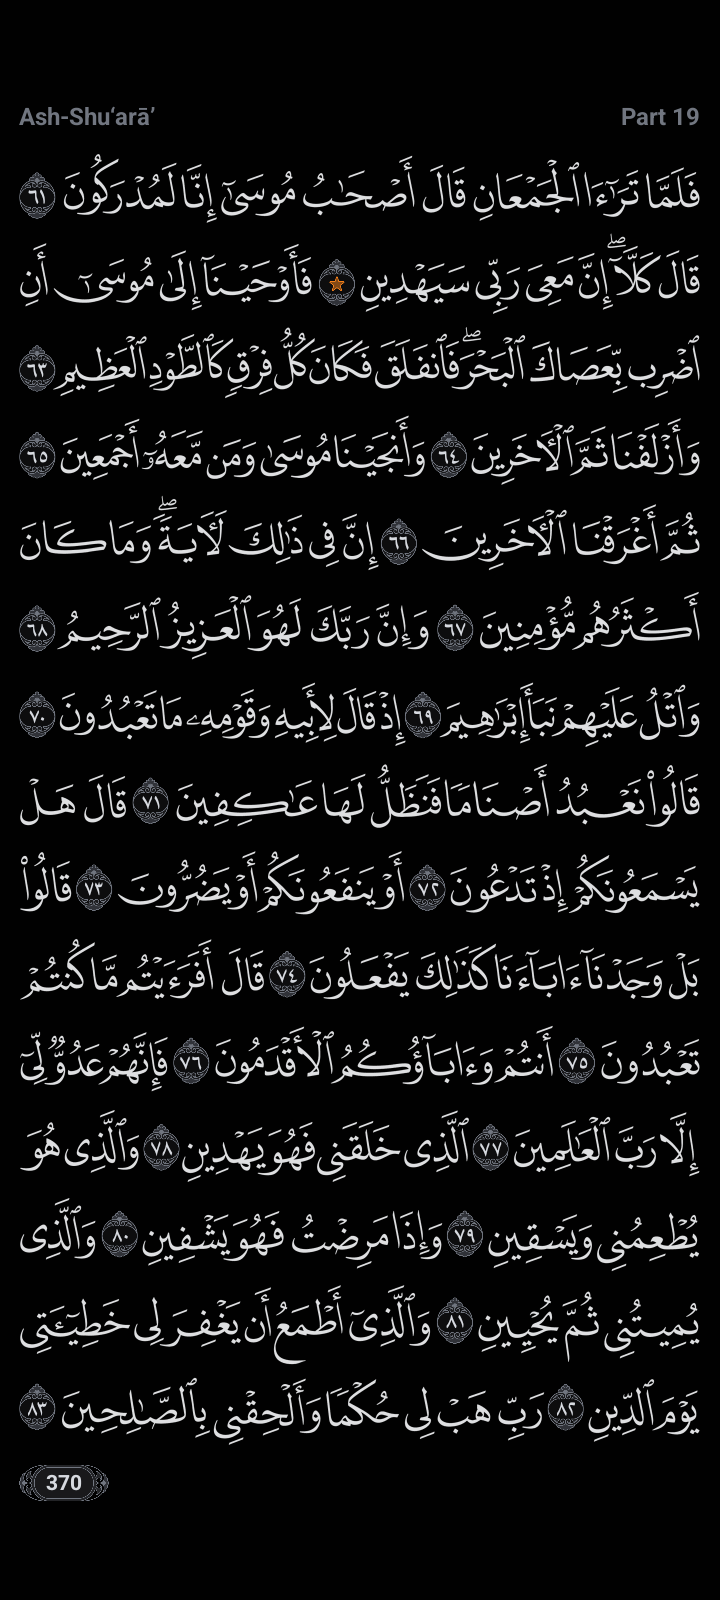 Ash-Shu‘arā’ Part 19
فَلَمَّا تَرَٰٓءَا ٱلْجَمْعَانِ قَالَ أَصْحَـٰبُ مُوسَىٰٓ إِنَّا لَمُدْرَكُونَ ٦١
قَالَ كَلَّآ ۖ إِنَّ مَعِىَ رَبِّى سَيَهْدِينِ ★ فَأَوْحَيْنَآ إِلَىٰ مُوسَىٰٓ أَنِ
ٱضْرِب بِّعَصَاكَ ٱلْبَحْرَ ۖ فَٱنفَلَقَ فَكَانَ كُلُّ فِرْقٍ كَٱلطَّوْدِ ٱلْعَظِيمِ ٦٣
وَأَزْلَفْنَا ثَمَّ ٱلْـَٔاخَرِينَ ٦٤ وَأَنجَيْنَا مُوسَىٰ وَمَن مَّعَهُۥٓ أَجْمَعِينَ ٦٥
ثُمَّ أَغْرَقْنَا ٱلْـَٔاخَرِينَ ٦٦ إِنَّ فِى ذَٰلِكَ لَـَٔايَةً ۖ وَمَا كَانَ
أَكْثَرُهُم مُّؤْمِنِينَ ٦٧ وَإِنَّ رَبَّكَ لَهُوَ ٱلْعَزِيزُ ٱلرَّحِيمُ ٦٨
وَٱتْلُ عَلَيْهِمْ نَبَأَ إِبْرَٰهِيمَ ٦٩ إِذْ قَالَ لِأَبِيهِ وَقَوْمِهِۦ مَا تَعْبُدُونَ ٧٠
قَالُوا۟ نَعْبُدُ أَصْنَامًا فَنَظَلُّ لَهَا عَـٰكِفِينَ ٧١ قَالَ هَلْ
يَسْمَعُونَكُمْ إِذْ تَدْعُونَ ٧٢ أَوْ يَنفَعُونَكُمْ أَوْ يَضُرُّونَ ٧٣ قَالُوا۟
بَلْ وَجَدْنَآ ءَابَآءَنَا كَذَٰلِكَ يَفْعَلُونَ ٧٤ قَالَ أَفَرَءَيْتُم مَّا كُنتُمْ
تَعْبُدُونَ ٧٥ أَنتُمْ وَءَابَآؤُكُمُ ٱلْأَقْدَمُونَ ٧٦ فَإِنَّهُمْ عَدُوٌّ لِّىٓ
إِلَّا رَبَّ ٱلْعَـٰلَمِينَ ٧٧ ٱلَّذِى خَلَقَنِى فَهُوَ يَهْدِينِ ٧٨ وَٱلَّذِى هُوَ
يُطْعِمُنِى وَيَسْقِينِ ٧٩ وَإِذَا مَرِضْتُ فَهُوَ يَشْفِينِ ٨٠ وَٱلَّذِى
يُمِيتُنِى ثُمَّ يُحْيِينِ ٨١ وَٱلَّذِىٓ أَطْمَعُ أَن يَغْفِرَ لِى خَطِيٓـَٔتِى
يَوْمَ ٱلدِّينِ ٨٢ رَبِّ هَبْ لِى حُكْمًا وَأَلْحِقْنِى بِٱلصَّـٰلِحِينَ ٨٣
370